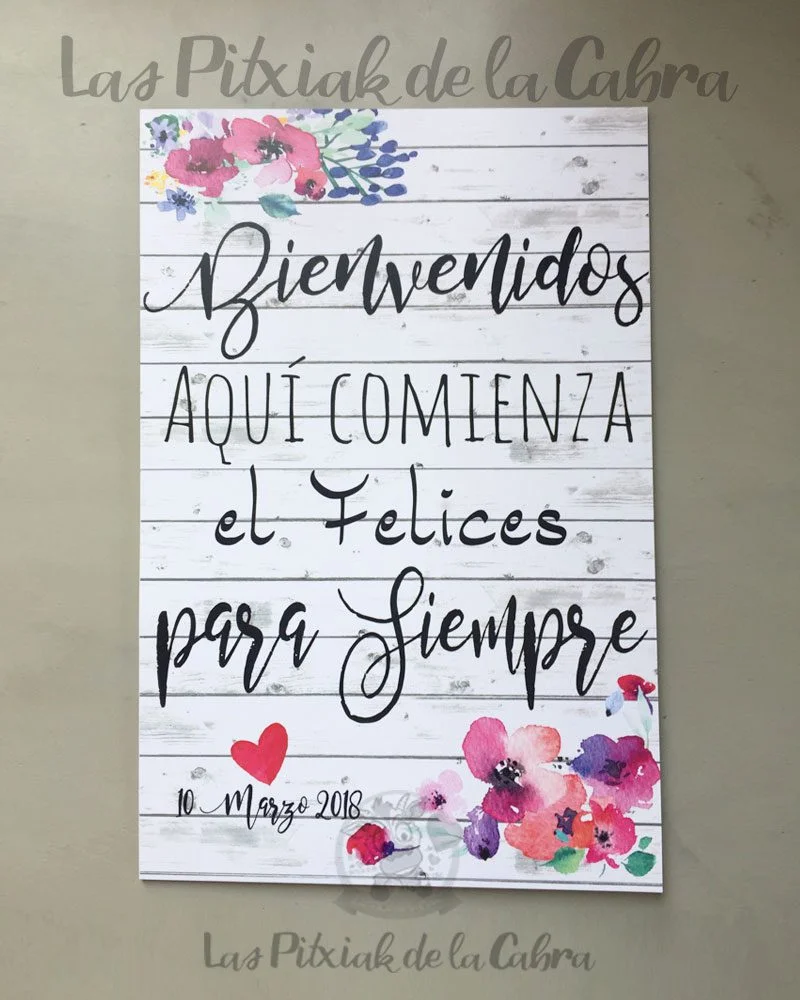 Las Pitxiak de la Cabra
Bienvenidos
AQUÍ COMIENZA
el Felices
para Siempre
10 Marzo 2018
Las Pitxiak de la Cabra